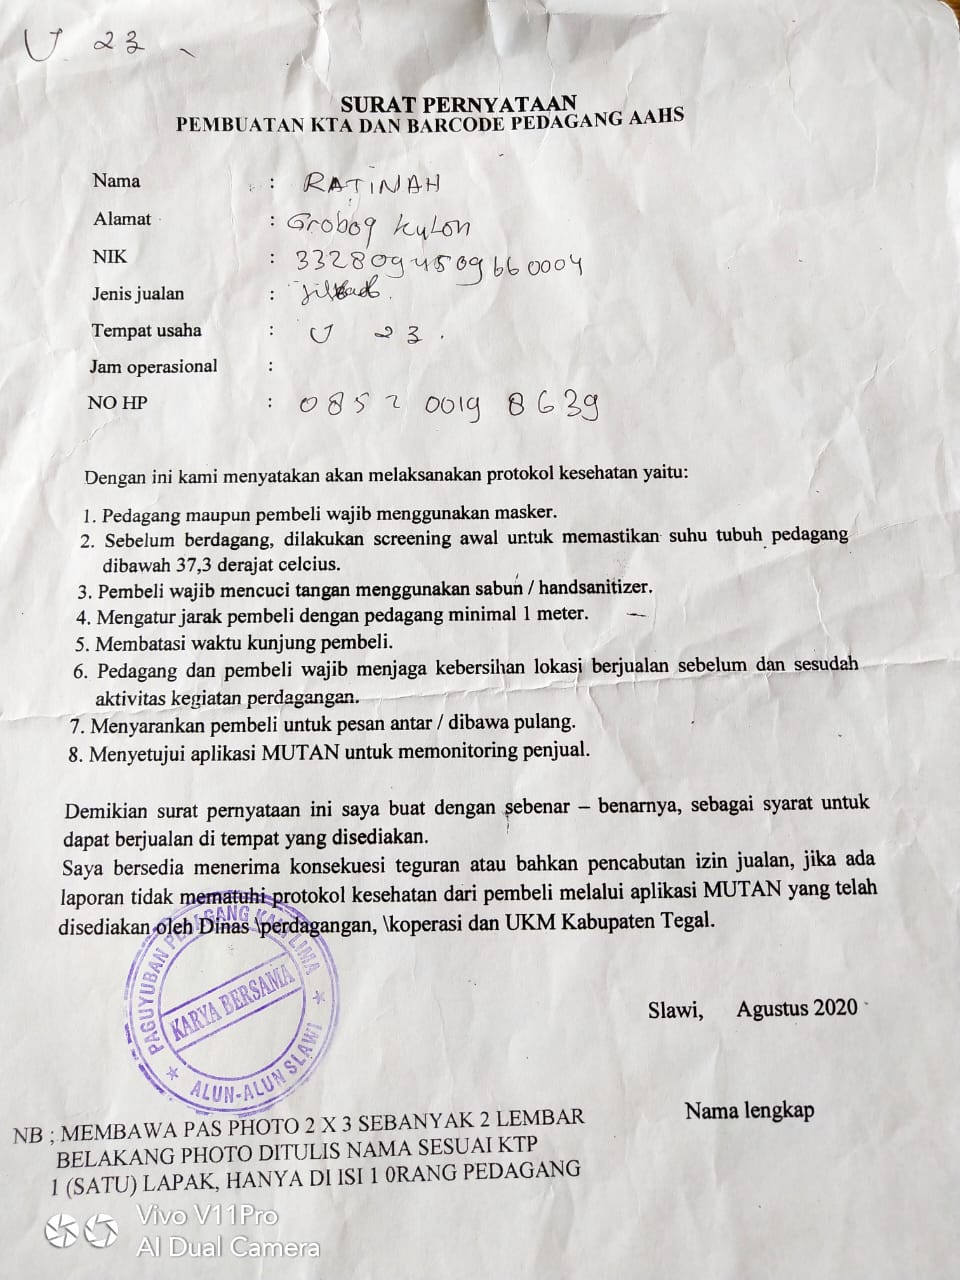 U 23
SURAT PERNYATAAN
PEMBUATAN KTA DAN BARCODE PEDAGANG AAHS
Nama : RATINAH
Alamat : Grobog kulon
NIK : 3328094509660004
Jenis jualan : Jilbab.
Tempat usaha : U 23.
Jam operasional :
NO HP : 0852 0019 8639
Dengan ini kami menyatakan akan melaksanakan protokol kesehatan yaitu:
1. Pedagang maupun pembeli wajib menggunakan masker.
2. Sebelum berdagang, dilakukan screening awal untuk memastikan suhu tubuh pedagang
dibawah 37,3 derajat celcius.
3. Pembeli wajib mencuci tangan menggunakan sabun / handsanitizer.
4. Mengatur jarak pembeli dengan pedagang minimal 1 meter.
5. Membatasi waktu kunjung pembeli.
6. Pedagang dan pembeli wajib menjaga kebersihan lokasi berjualan sebelum dan sesudah
aktivitas kegiatan perdagangan.
7. Menyarankan pembeli untuk pesan antar / dibawa pulang.
8. Menyetujui aplikasi MUTAN untuk memonitoring penjual.
Demikian surat pernyataan ini saya buat dengan sebenar – benarnya, sebagai syarat untuk
dapat berjualan di tempat yang disediakan.
Saya bersedia menerima konsekuesi teguran atau bahkan pencabutan izin jualan, jika ada
laporan tidak mematuhi protokol kesehatan dari pembeli melalui aplikasi MUTAN yang telah
disediakan oleh Dinas \perdagangan, \koperasi dan UKM Kabupaten Tegal.
PAGUYUBAN PEDAGANG KAKI LIMA
KARYA BERSAMA
ALUN-ALUN SLAWI
Slawi, Agustus 2020
Nama lengkap
NB ; MEMBAWA PAS PHOTO 2 X 3 SEBANYAK 2 LEMBAR
BELAKANG PHOTO DITULIS NAMA SESUAI KTP
1 (SATU) LAPAK, HANYA DI ISI 1 0RANG PEDAGANG
Vivo V11Pro
AI Dual Camera